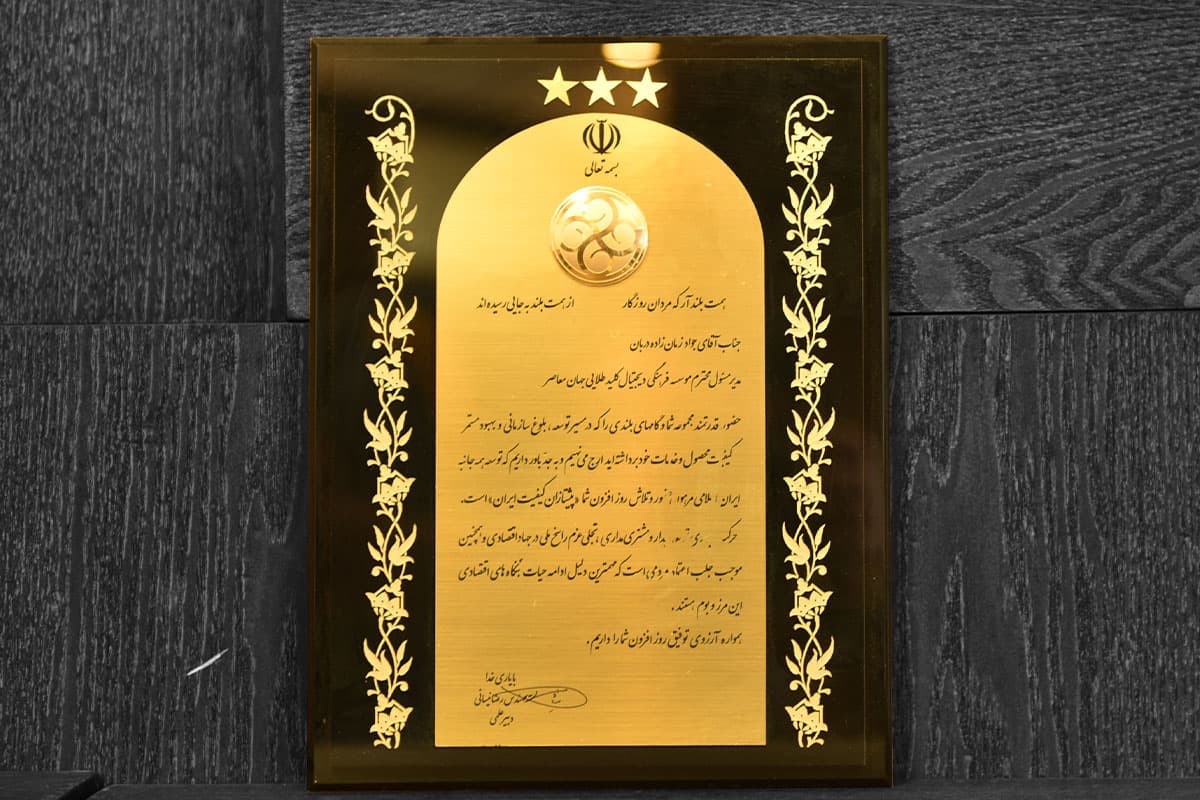 بسمه تعالی
همت بلند آر که مردان روزگار از همت بلند به جایی رسیده اند
جناب آقای جواد زمان زاده دربان
مدیر مسئول محترم موسسه فرهنگی دیجیتال کلید طلایی جهان معاصر
حضور قدرتمند مجموعه شما و گامهای بلندی را که در مسیر توسعه، بلوغ سازمانی و بهبود مستمر
کیفیت محصول و خدمات خود برداشته اید ارج می نهیم و به جد باور داریم که توسعه همه جانبه
ایران و تلاش روز افزون شما «پیشتازان کیفیت ایران» است.
و مشتری مداری، تجلی عزم راسخ ملی در جهاد اقتصادی و همچنین
موجب جلب اعتماد است که مهمترین دلیل ادامه حیات بنگاه های اقتصادی
این مرز و بوم هستند.
همواره آرزوی توفیق روز افزون شما را داریم.
با یاری خدا
دبیر علمی